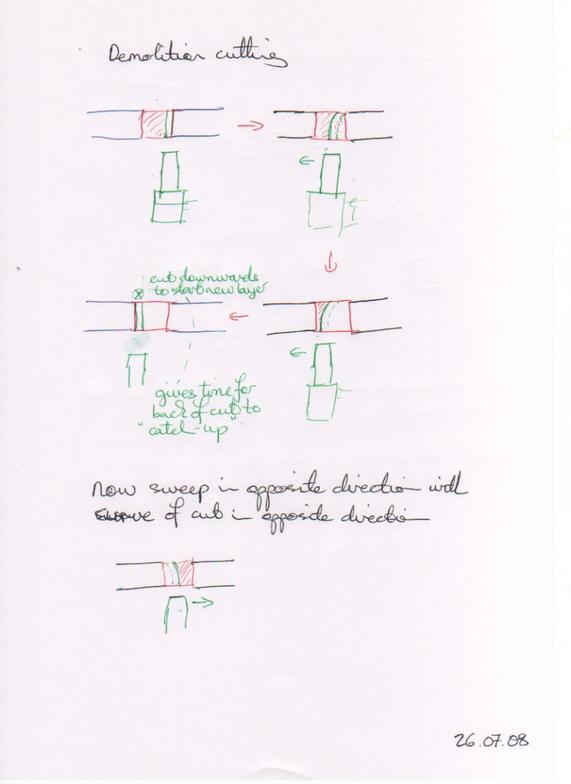 Demolition cutting
cut downwards
to start new layer
gives time for
back of cut to
"catch-up"
Now sweep in opposite direction with
curve of cut in opposite direction
26.07.08